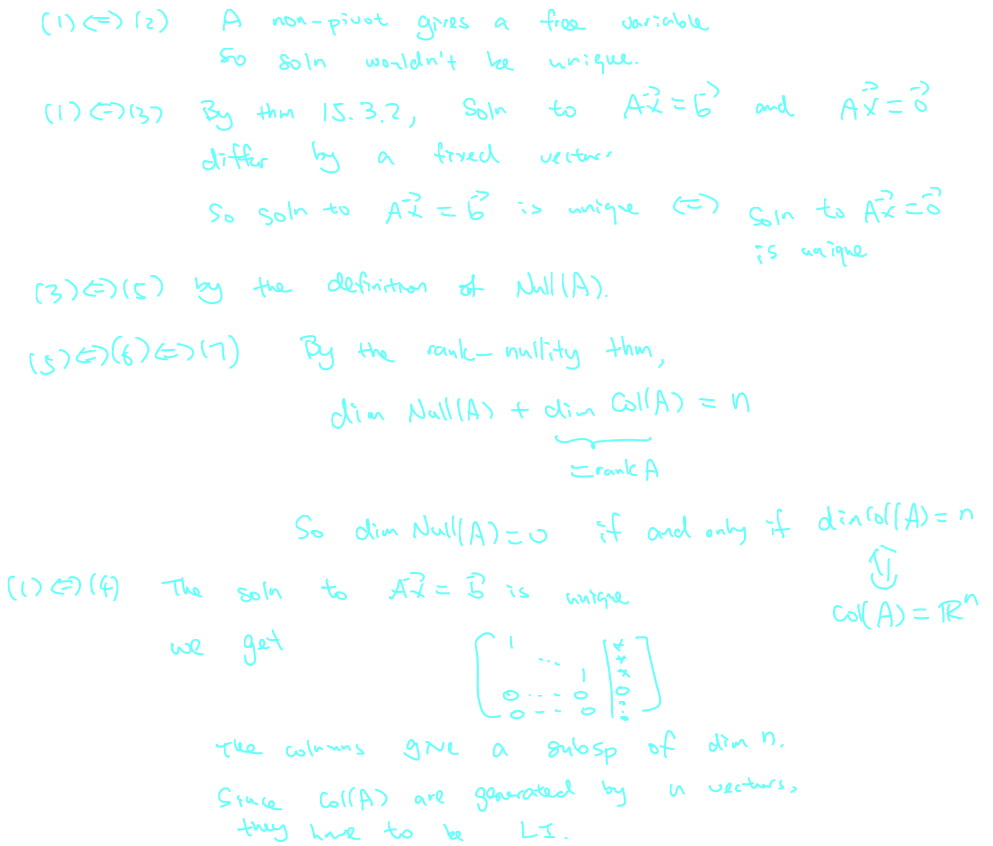 (1) ⇔ (2) A non-pivot gives a free variable
So soln wouldn't be unique.
(1) ⇔ (3) By thm 15.3.2, Soln to Ax⃗ = b⃗ and Ax⃗ = 0⃗
differ by a fixed vector.
So soln to Ax⃗ = b⃗ is unique ⇔ soln to Ax⃗ = 0⃗
is unique
(3) ⇔ (5) by the definition of Null(A).
(5) ⇔ (6) ⇔ (7) By the rank-nullity thm,
dim Null(A) + dim Col(A) = n
= rank A
So dim Null(A) = 0 if and only if dim Col(A) = n
⇕
Col(A) = ℝⁿ
(1) ⇔ (4) The soln to Ax⃗ = b⃗ is unique
we get
[ 1 | *
⋯ | *
1 | *
0 ⋯ 0 | 0
0 -- 0 | ⋮ 0 ]
The columns give a subsp of dim n.
Since Col(A) are generated by n vectors,
they have to be LI.